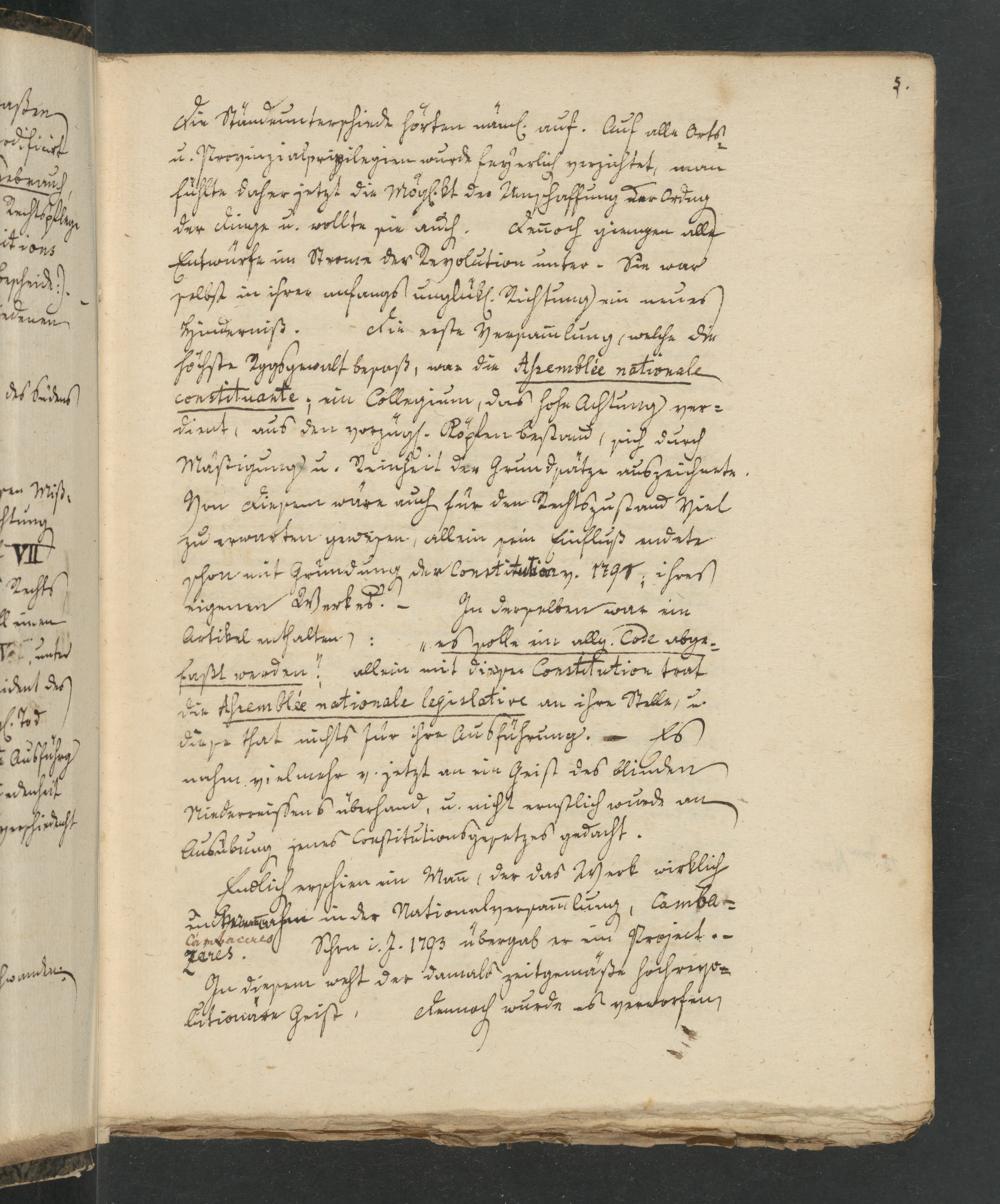 5.
Die Ständeunterschiede hörten näml. auf. Auf alle Orts-
u. Provinzialprivilegien wurde feyerlich verzichtet, man
fühlte daher jetzt die Möglkt der Umschaffung der Ordng
der Dinge u. wollte sie auch. Dennoch giengen alle
Entwürfe im Strome der Revolution unter. Sie war
selbst in ihrer anfangs unglükl. Richtung ein neues
Hinderniß. Die erste Versam̄lung, welche die
höchste Rggsgewalt besaß, war die Assemblée nationale
constituante, ein Collegium, das hohe Achtung ver-
dient, aus den vorzügl. Köpfen bestand, sich durch
Mäßigung u. Reinheit der Grundsätze auszeichnete.
Von diesem wäre auch für den Rechtszustand viel
zu erwarten gewesen, allein sein Einfluß endete
schon mit Gründung der Constitution v. 1791, ihres
eigenen Werkes. – In derselben war ein
Artikel enthalten: „es solle ein allg. Code abge-
faßt werden". allein mit dieser Constitution trat
die Assemblée nationale legislative an ihre Stelle, u.
diese that nichts für ihre Ausführung. — Es
nahm vielmehr v. jetzt an ein Geist des blinden
Niederreissens überhand, u. nicht ernstlich wurde an
Ausübung jenes Constitutionsgesetzes gedacht.
Endlich erschien ein Man̄, der das Werk wirklich
in der Nationalversam̄lung, Camba-
Cambaceres
zeres. Schon i. J. 1793 übergab er ein Project. –
In diesem weht der damals zeitgemäße hochrevo-
lutionäre Geist, dennoch wurde es verworfen